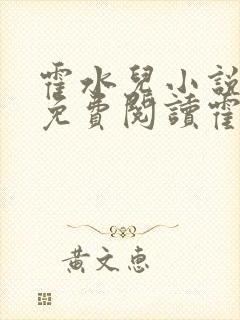 霍水兒小說
免費閱讀霍
黃文惠